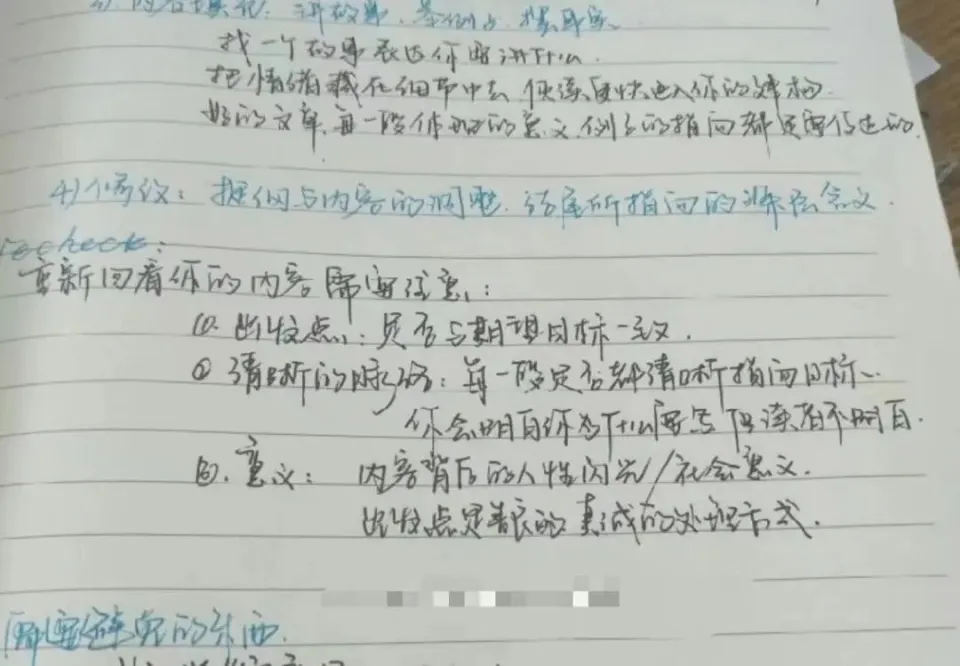 3) 内容填充:讲故事、举例子、摆事实
找一个故事表达你要讲什么.
把情绪藏在细节中去,使读者快进入你的文章构.
好的文章,每一段体现的意义,例子的指向都是要传达的.
4) 修改:提纲与内容的调整.结尾所指向的深层含义.
recheck:
重新回看你的内容需要注意:
①. 出发点:是否与期望目标一致.
② 清晰的脉络:每一段是否都清晰指向目标.
你会明白你为什么要写 但读者不明白.
③. 意义: 内容背后的人性闪光/社会意义.
出发点是善良的 真诚的处理方式.
需要避免的东西.